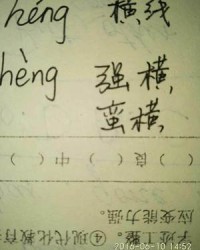 héng 横线
hèng 强横
蛮横
( )良( )中( )
应变能力强。
子定工整。④现代化教育
2016-06-10 14:52